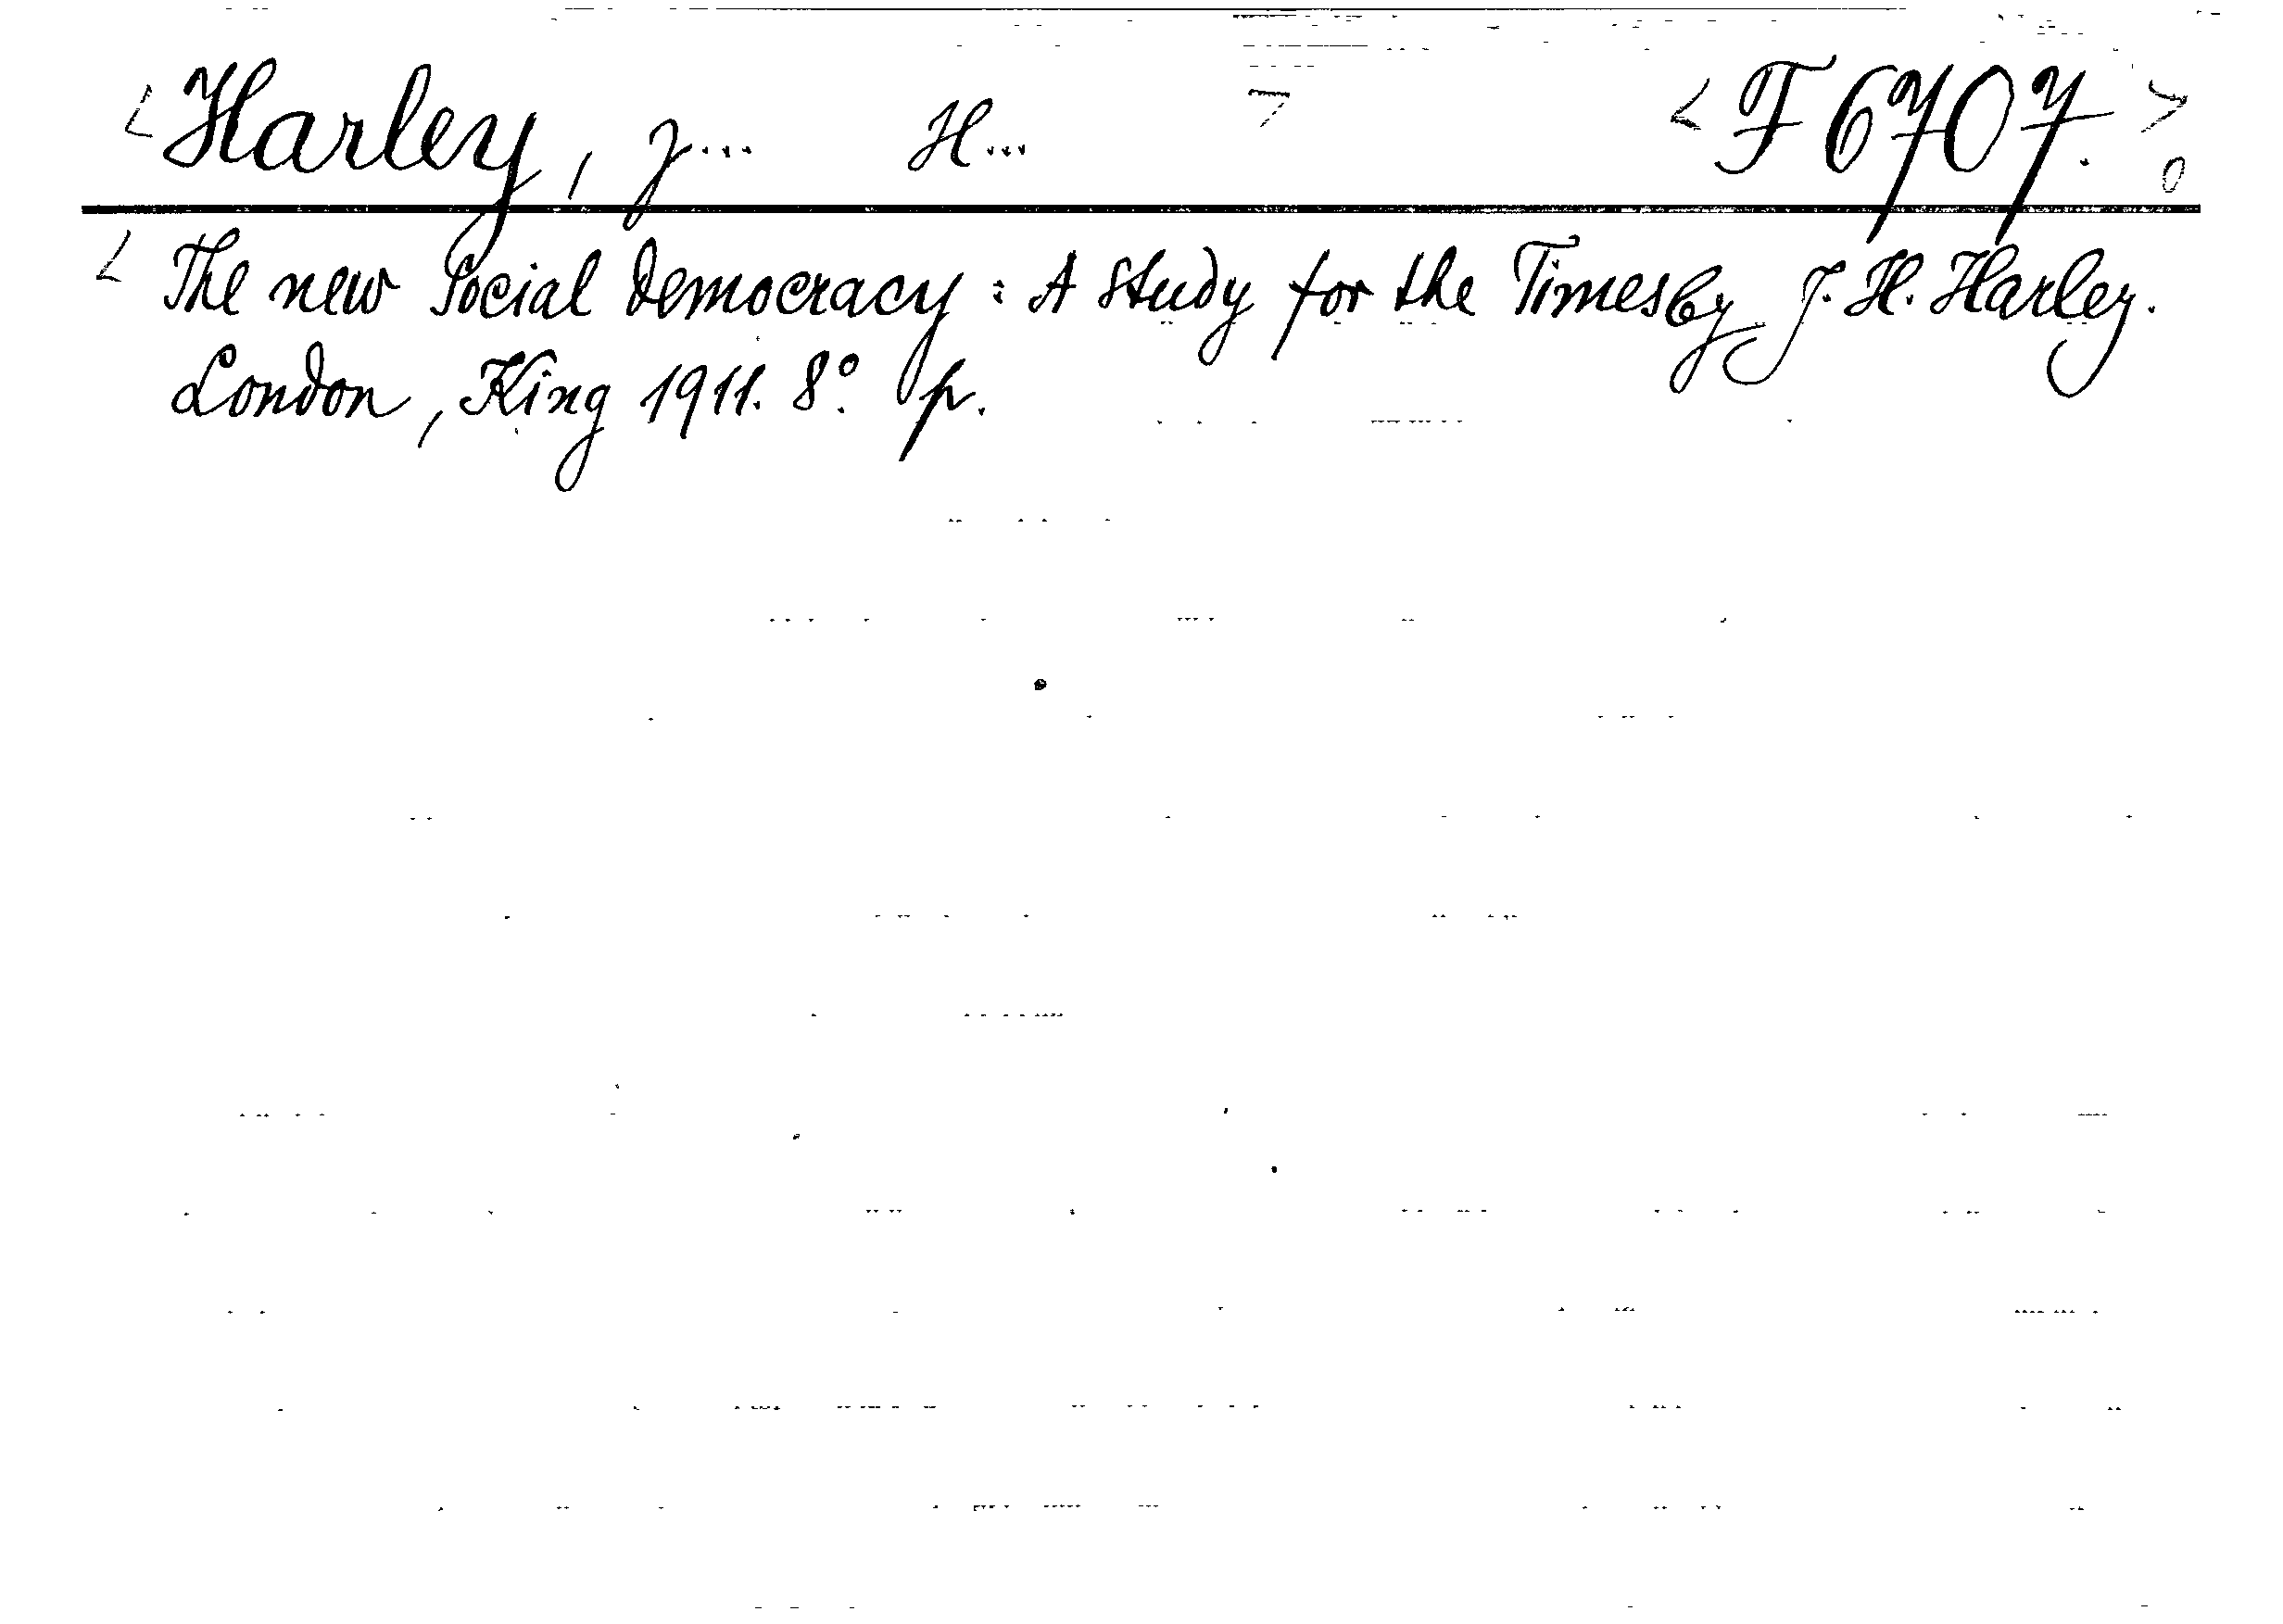 <Harley, J... H...> <F 6707.>
<The new Social Democracy: A Study for the Times by J. H. Harley.
London, King 1911. 8°. p.